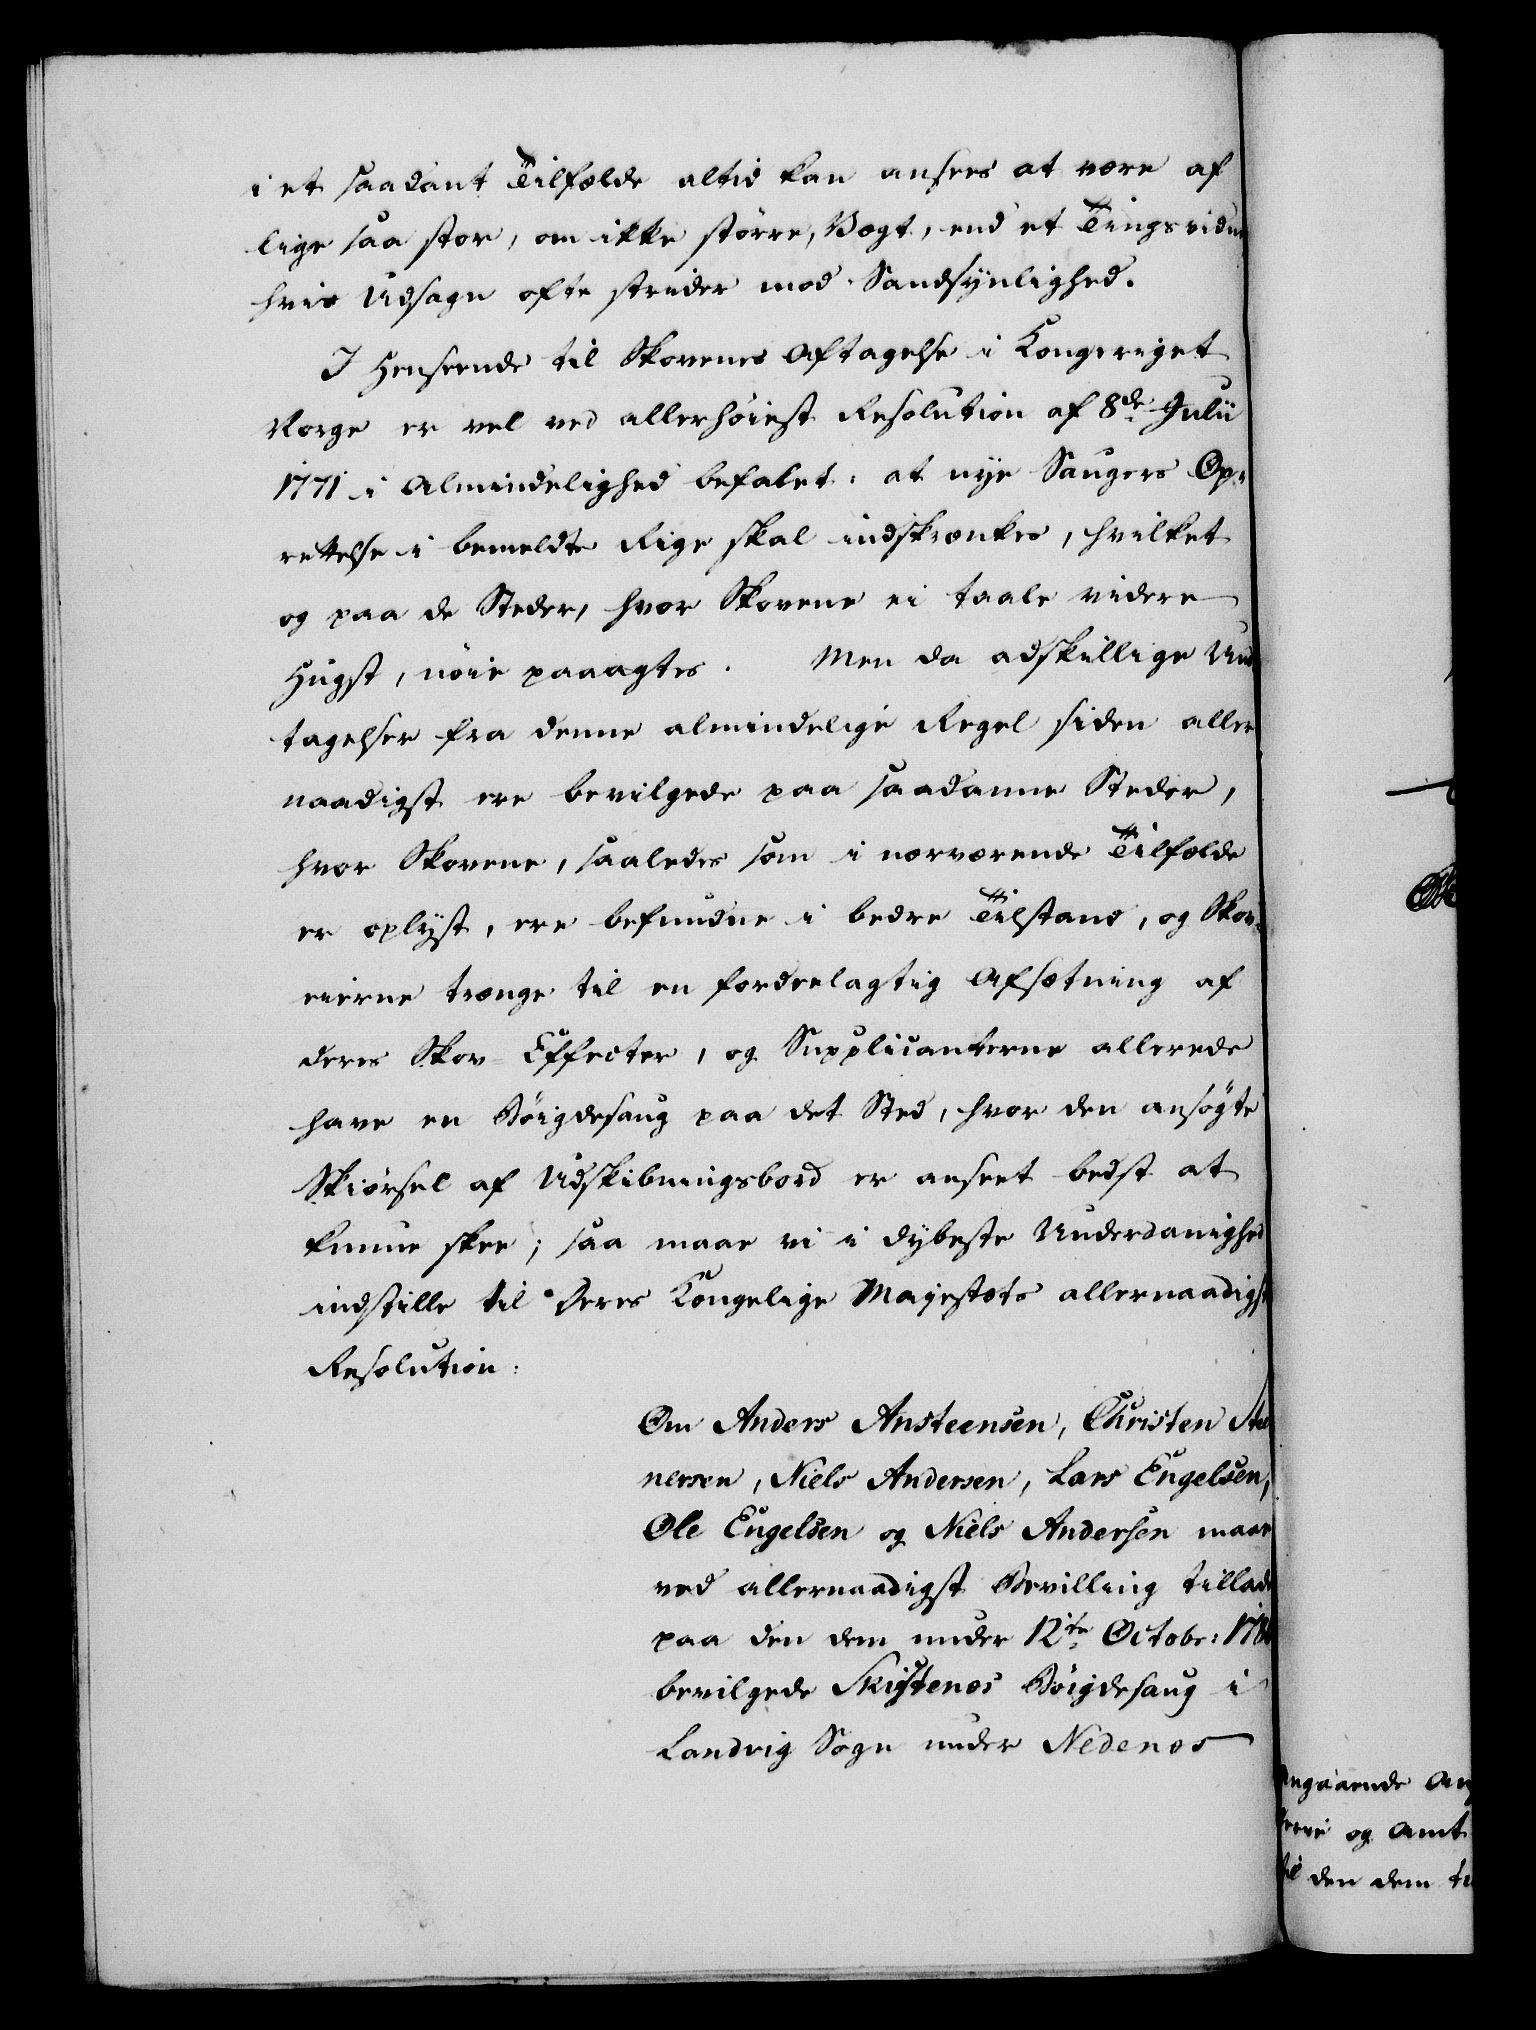 i et saadant Tilfælde altid kan ansees at være af
lige saa stor, om ikke större, Vægt, end et Tingsvidne
hvis Udsagn ofte strider mod Sandsÿnlighed.
I Henseende til Skovenes Aftagelse i Kongeriget
Norge er vel ved allerhöiest Resolution af 8de Julii
1771 i Almindelighed befalet: at nÿe Saugers Op-
rettelse i bemeldte Rige skal indskrænkes, hvilket
og paa de Steder, hvor Skovene ei taale videre
Hugst, nöie paaagtes. Men da adskillige Und
tagelser fra denne almindelige Regel siden aller
naadigst ere bevilgede paa saadanne Steder,
hvor Skovene, saaledes som i nærværende Tilfælde
er oplÿst, ere befundne i bedre Tilstand, og Skov-
eierne trænge til en fordeelagtig Afsætning af
deres Skov-Effecter, og Supplicanterne allerede
have en Böigdesaug paa det Sted, hvor den ansögte
Skiörsel af Udskibningsbord er anseet bedst at
kunne skee; saa maae vi i dÿbeste Underdanighed
indstille til Deres Kongelige Majestæts allernaadigst
Resolution:
Om Anders Ansteensen, Christen Stee
nersen, Niels Andersen, Lars Engelsen,
Ole Engelsen og Niels Andersen maae
ved allernaadigst Bevilling tillade
paa den dem under 12te Octobr: 178
bevilgede Skiftenes Böigdesaug i
Landvig Sogn under Nedenes
angaaende An
og Amt
til den dem